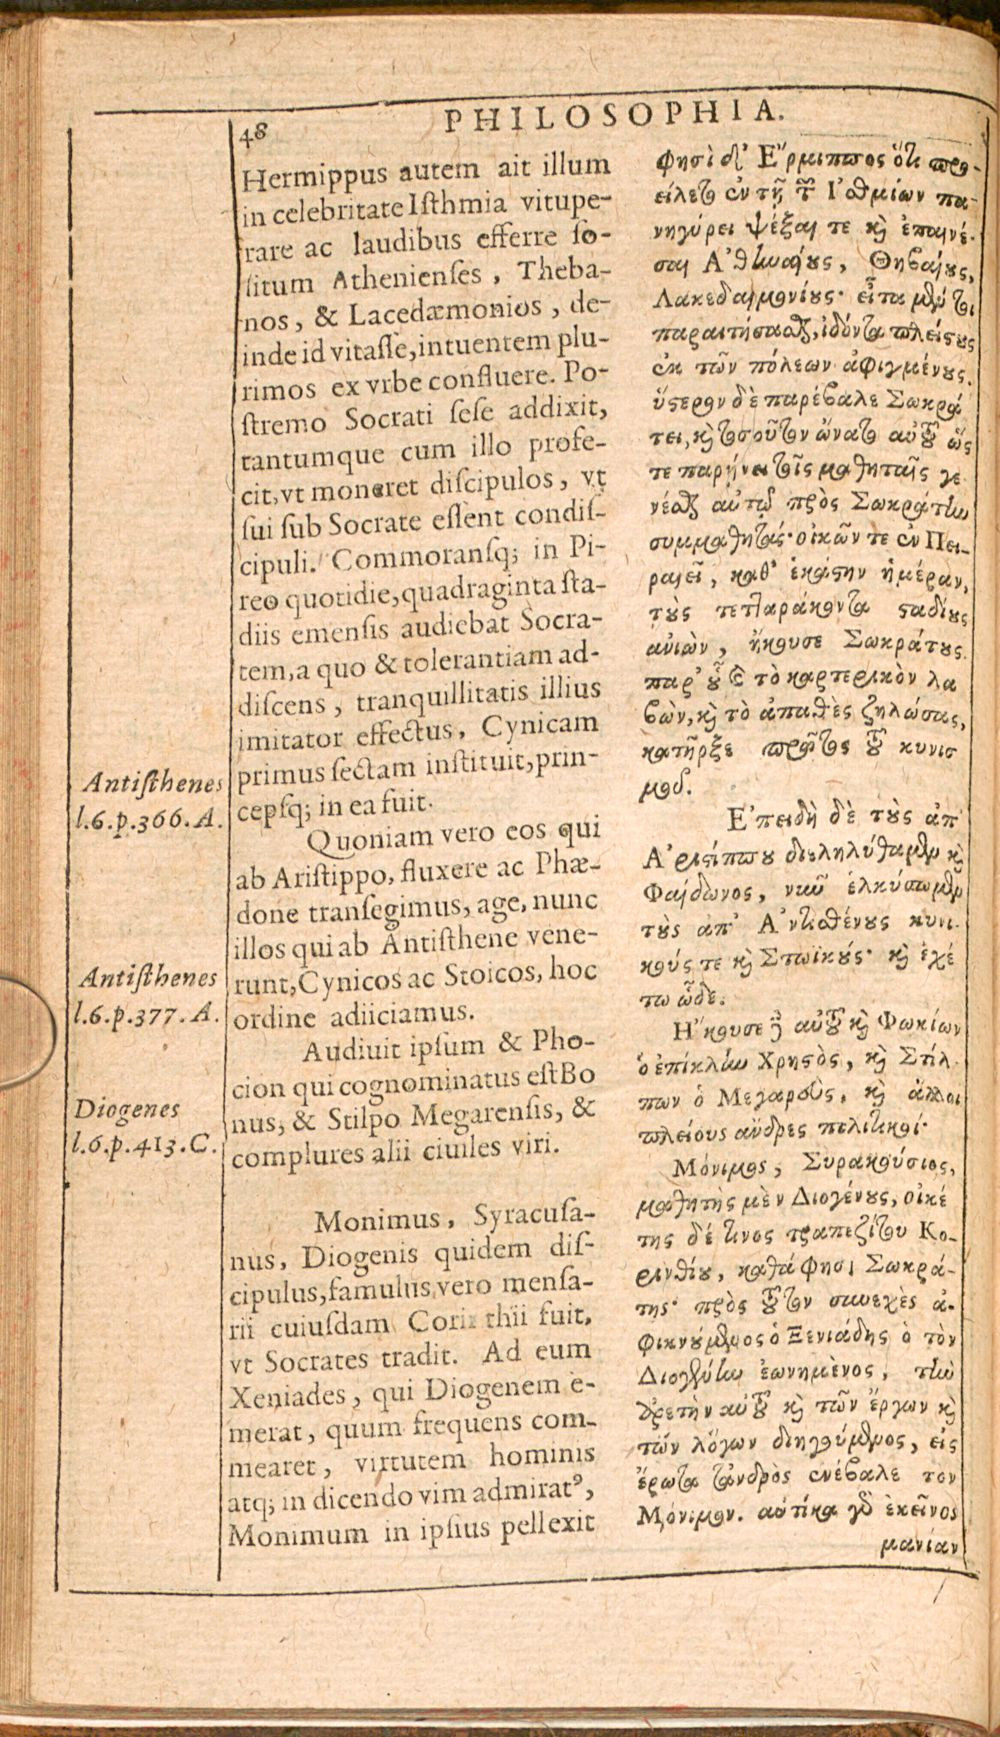 48
PHILOSOPHIA.
Antiſthenes
l.6.p.366.A.
Antiſthenes
l.6.p.377.A.
Diogenes
l.6.p.413.C.
Hermippus autem ait illum
in celebritate Iſthmia vitupe-
rare ac laudibus efferre ſo-
litum Athenienſes, Theba-
nos, & Lacedæmonios, de-
inde id vitaſſe, intuentem plu-
rimos ex vrbe confluere. Po-
ſtremo Socrati ſeſe addixit,
tantumque cum illo profe-
cit, vt moneret diſcipulos, vt
ſui ſub Socrate eſſent condiſ-
cipuli. Commoranſq; in Pi-
reo quotidie, quadraginta ſta-
diis emenſis audiebat Socra-
tem, a quo & tolerantiam ad-
diſcens, tranquillitatis illius
imitator effectus, Cynicam
primus ſectam inſtituit, prin-
cepſq; in ea fuit.
Quoniam vero eos qui
ab Ariſtippo, fluxere ac Phæ-
done tranſegimus, age, nunc
illos qui ab Antiſthene vene-
runt, Cynicos ac Stoicos, hoc
ordine adiiciamus.
Audiuit ipſum & Pho-
cion qui cognominatus eſt Bo
nus, & Stilpo Megarenſis, &
complures alii ciuiles viri.
Monimus, Syracuſa-
nus, Diogenis quidem diſ-
cipulus, famulus vero menſa-
rii cuiuſdam Corinthii fuit,
vt Socrates tradit. Ad eum
Xeniades, qui Diogenem e-
merat, quum frequens com-
mearet, virtutem hominis
atq; in dicendo vim admirat⁹,
Monimum in ipſius pellexit
φησὶ δ' Ἕρμιππος ὅτι προ-
είλετο ἐν τῇ τῶν Ἰσθμίων πα-
νηγύρει ψέξαι τε καὶ ἐπαινέ-
σαι Ἀθηναίους, Θηβαίους,
Λακεδαιμονίους· εἶτα μέντοι
παραιτήσασθαι, ἰδόντα πλείους
ἐκ τῶν πόλεων ἀφιγμένους.
ὕστερον δὲ παρέβαλε Σωκρά
τει, καὶ τοσοῦτον ὤνατο αὐτοῦ ὥς
τε παρῄνει τοῖς μαθηταῖς γε
νέσθαι αὐτῷ πρὸς Σωκράτην
συμμαθητάς· οἰκῶν τε ἐν Πει-
ραιεῖ, καθ' ἑκάστην ἡμέραν,
τοὺς τετταράκοντα σταδίους
ἀνιὼν, ἤκουσε Σωκράτους.
παρ' οὗ καὶ τὸ καρτερικὸν λα
βὼν, καὶ τὸ ἀπαθὲς ζηλώσας,
κατῆρξε πρῶτος τοῦ κυνισ
μοῦ.
Ἐπειδὴ δὲ τοὺς ἀπ'
Ἀριστίππου διεληλύθαμεν καὶ
Φαίδωνος, νῦν ἑλκύσωμεν
τοὺς ἀπ' Ἀντισθένους κυνι-
κούς τε καὶ Στωϊκούς· καὶ ἐχέ
τω ὧδε.
Ἤκουσε δὲ αὐτοῦ καὶ Φωκίων
ὁ ἐπίκλην Χρηστὸς, καὶ Στίλ-
πων ὁ Μεγαρεὺς, καὶ ἄλλοι
πλείους ἄνδρες πολιτικοί·
Μόνιμος, Συρακούσιος,
μαθητὴς μὲν Διογένους, οἰκέ
της δέ τινος τραπεζίτου Κο-
ρινθίου, καθά φησι Σωκρά-
της· πρὸς τοῦτον συνεχὲς ἀ-
φικνούμενος ὁ Ξενιάδης ὁ τὸν
Διογένην ἐωνημένος, τὴν
ἀρετὴν αὐτοῦ καὶ τῶν ἔργων καὶ
τῶν λόγων διηγούμενος, εἰς
ἔρωτα τἀνδρὸς ἐνέβαλε τον
Μόνιμον. αὐτίκα γὰρ ἐκεῖνος
μανίαν